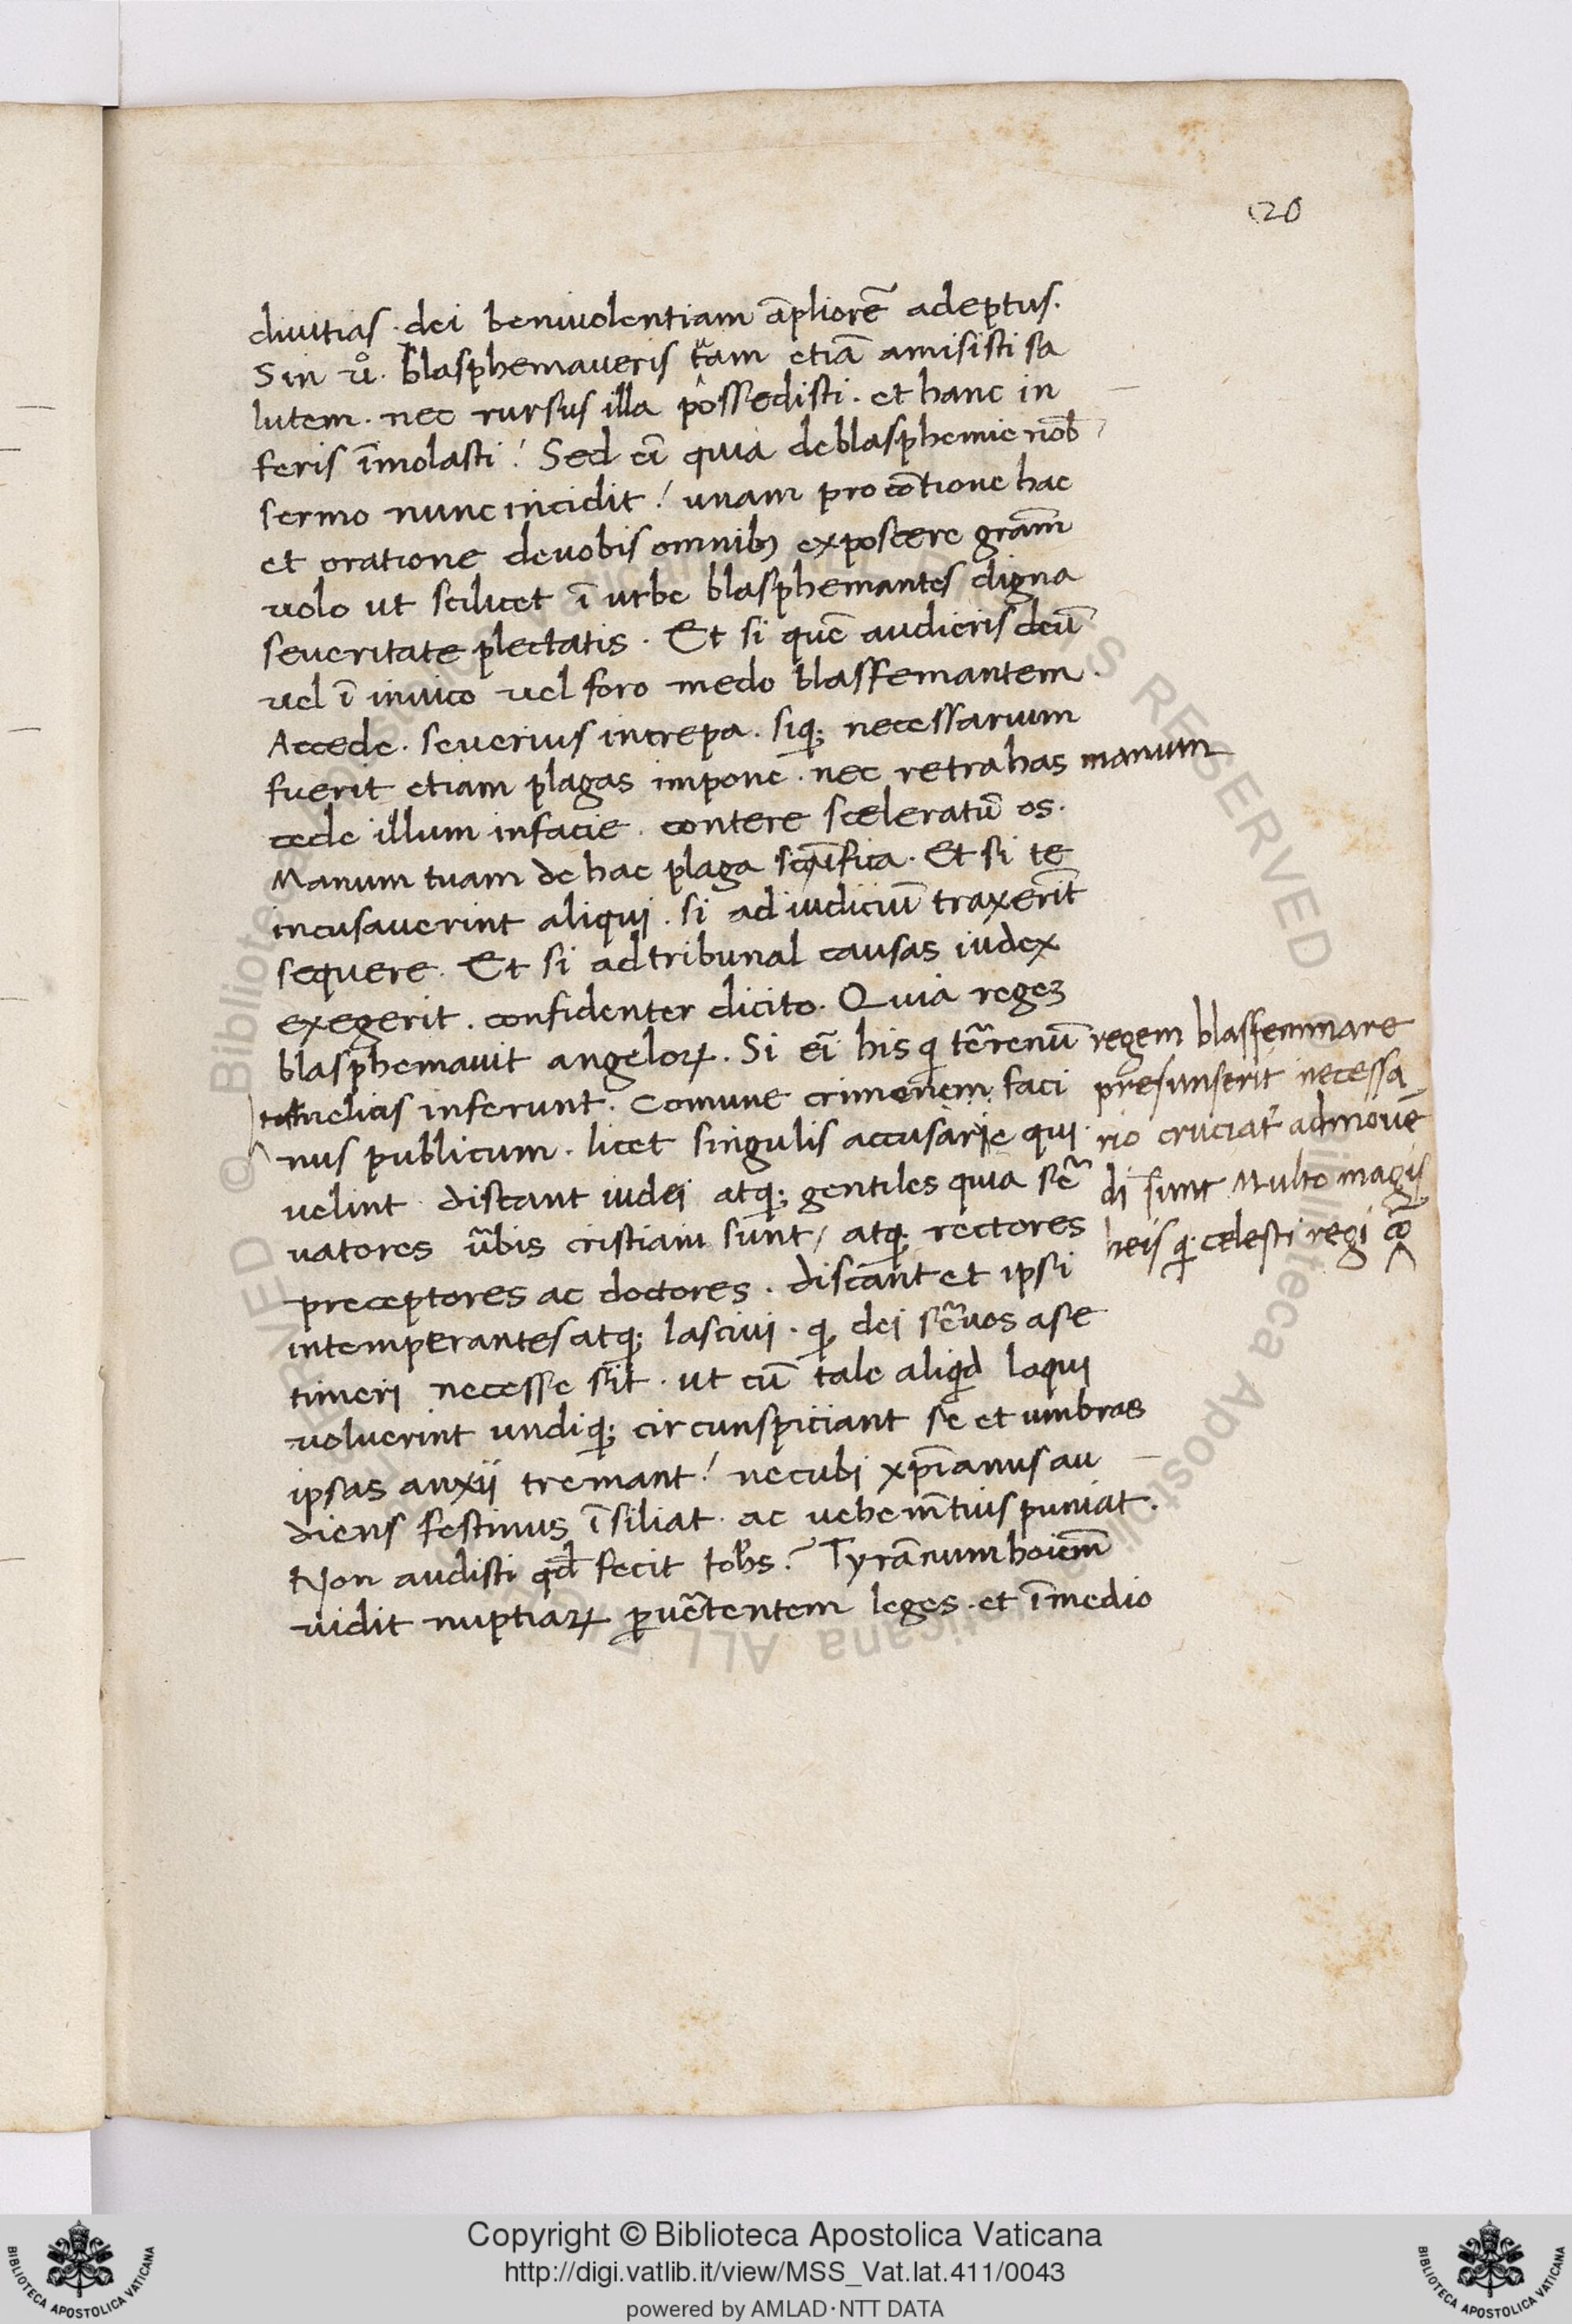 20
divitias . dei benivolentiam āpliorē adeptus.
Sin ů . blasphemaveris tuam etiā amisisti sa
lutem . nec rursus illa possedisti . et hanc in
feris īmolasti ! Sed ēi quia deblasphemie nob̄
sermo nunc incidit ! unam pro cōtione hac
et oratione devobis omnibꝫ exposcere grām
volo ut scilicet ī urbe blasphemantes digna
severitate plectatis . Et si quē audieris deū
vel ī invico vel foro medo blasfemantem .
Accede . severius increpa . siqꝫ necessarium
fuerit etiam plagas impone . nec retrahas manum
cede illum infacie . contere sceleratū os .
Manum tuam de hac plaga scīfica . Et si te
incusaverint aliqui . si ad iudiciū traxerīt
sequere . Et si adtribunal causas iudex
exegerit . confidenter dicito . Quia regeꝫ
blasphemavit angeloꝝ . Si eī his q tērenū
regem blasfemmare
presunserit necessa
rio cruciat᷑ admovē
di sunt Multo magis
heis q celesti regi cō
tumelias inferunt . Comune crimen em faci
nus publicum . licet singulis accusarie qui
velint discant iudei atqꝫ gentiles quia sē
vatores ūbis cristiani sunt / atqꝫ rectores
preceptores ac doctores . discant et ipsi
intemperantes atqꝫ lascivi . q dei sēvos a se
timeri necesse sit . ut cū tale aliqd loqui
voluerint undiqꝫ circunspiciant se et umbras
ipsas anxij tremant ! necubi xp̄ianus au
diens festinus īsiliat . ac vehemētius puniat .
Non audisti qđ fecit Iohs ? Tyrānum hoiēm
vidit nuptiaꝝ ꝑvētentem leges . et īmedio
Copyright © Biblioteca Apostolica Vaticana
http://digi.vatlib.it/view/MSS_Vat.lat.411/0043
powered by AMLAD·NTT DATA
BIBLIOTECA APOSTOLICA VATICANA
BIBLIOTECA APOSTOLICA VATICANA